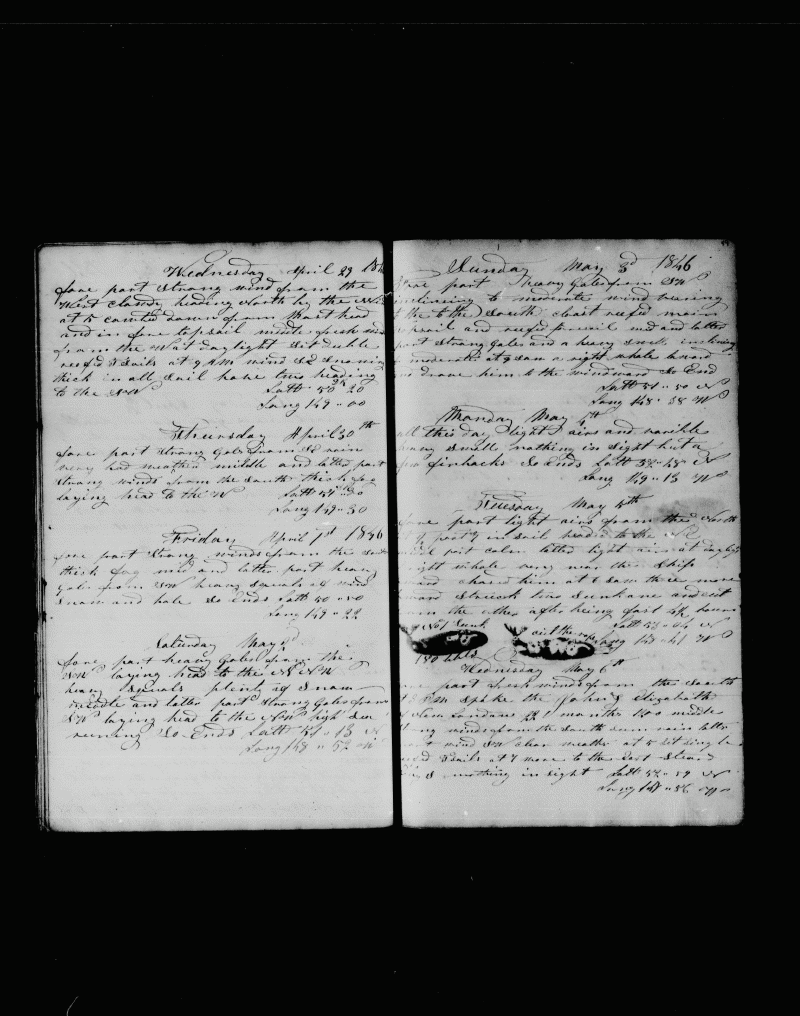 Wednesday April 29 184
fore part Strong wind from the
West Cloudy heading North by the
at 5 down from Mast head
and in fore topsail middle fresh
from the W at daylight Set double
reefd T Sails at 9 AM wind SE Snowing
thick in all Sail have two heading
to the NW Latt 50 " 20
Long 149 " 00
Thursday April 30th
fore part Strong Gales from SE rain
very bad weather middle and latter part
Strong winds from the South thick fog
laying head to the W Latt 30
Long 149 " 30
Friday April 1st 1846
fore part Strong winds from the South
thick fog mid and latter part heavy
Gales from SW heavy Squals of wind
Snow and hale So Ends Latt 50 " 50
Long 149 " 22
Saturday May 2d
fore part heavy Gales from the
SW laying head to the NNW
heavy Squals plenty of Snow
middle and latter part Strong Gales from
SW laying head to the NW high Sea
running So Ends Latt 51 " 13 N
Long 148 " 52 W
Sunday May 3d 1846
fore part heavy Gales from SW
inclining to moderate wind
the to the South close reefd main
topsail and reefd foresail mid and latter
part Strong Gales and a heavy Swell inclining
moderate at 9 saw a right whale
him to the windward So End
Latt 51 " 50 N
Long 148 " 38 W
Monday May 4th
all this day light airs and varible
heavy Swells nothing in Sight but a
few finbacks So Ends Latt 52 " 48 N
Long 149 " 13 W
Tuesday May 5th
fore part light airs from the North
in Sail headed to the
part calm latter light airs at daylight
right whale very near the Ship
chased him at 6 saw three more
Struck two Sunk one and cut
from the other after being fast 4 hours
No 1 Sunk cut the rope Latt 53 " 04 N
Long 149 " 41 W
130 bbls
Wednesday May 6th
fore part fresh winds from the South
PM Spoke the John & Elizabeth
of New London 22 months 1200 middle
Strong winds from the South Sum rain latter
part wind SW clear weather at 5 Set Single
reefd T Sails at 7 wore to the East
nothing in Sight Latt 52 " 59 N
Long 148 " 56 W